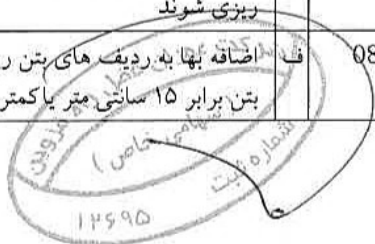 ریزی شوند
08 ف اضافه بها به ردیف های بتن ر
بتن برابر ۱۵ سانتی متر یا کمتر
(سهامی خاص)
شماره ثبت
۱۲۶۹۵